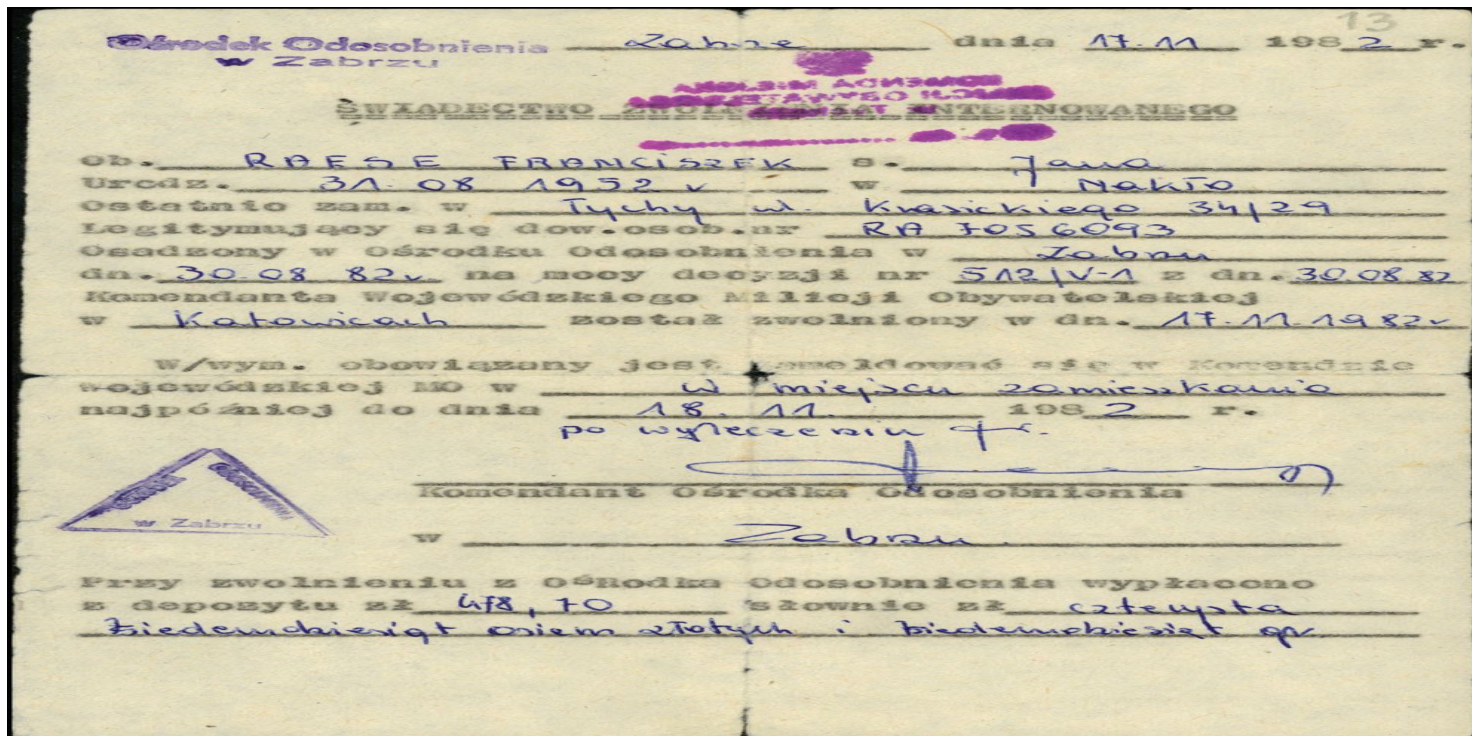 13
Ośrodek Odosobnienia Zabrze dnia 17.11 1982 r.
w Zabrzu
ŚWIADECTWO ZWOLNIENIA INTERNOWANEGO
Ob. RAESE FRANCISZEK s. Jana
Urodz. 31.08 1952 r w Nakło
Ostatnio zam. w Tychy ul. Krasickiego 34/29
Legitymujący się dow.osob.nr RA 7056093
Osadzony w Ośrodku Odosobnienia w Zabrzu
dn. 30.08 82r. na mocy decyzji nr 512/V-1 z dn. 30.08 82
Komendanta Wojewódzkiego Milicji Obywatelskiej
w Katowicach został zwolniony w dn. 17.11.1982r
W/wym. obowiązany jest zameldować się w Komendzie
Wojewódzkiej MO w w miejscu zamieszkania
najpóźniej do dnia 18.11. 1982 r.
po wyleczeniu
Komendant Ośrodka Odosobnienia
w Zabrzu
w Zabrzu
Przy zwolnieniu z OśRodka Odosobnienia wypłacono
z depozytu zł 478,70 słownie zł czterysta
siedemdziesiąt osiem złotych i siedemdziesiąt gr